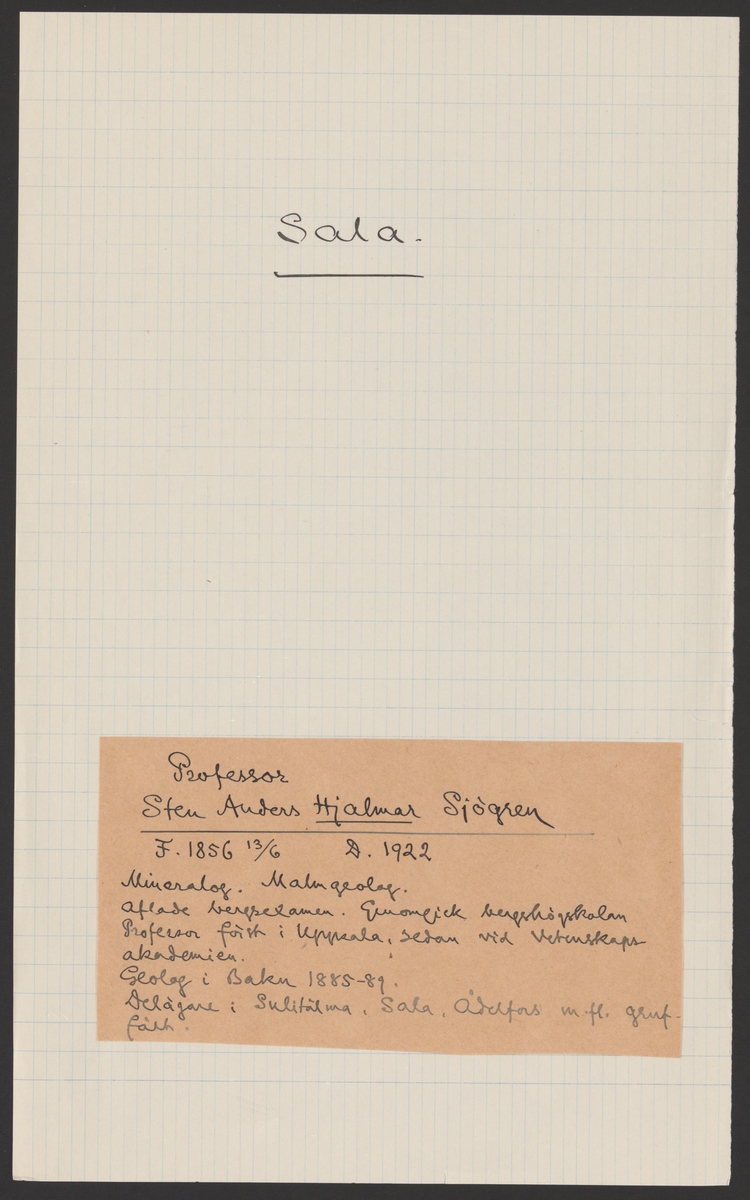 Sala.
Professor
Sten Anders Hjalmar Sjögren
F. 1856 13/6 D. 1922
Mineralog. Malmgeolog.
Aflade bergsexamen. Genomgick bergshögskolan
Professor först i Uppsala, sedan vid Vetenskaps-
akademien.
Geolog i Baku 1885-89.
Delägare i Sulitälma, Sala, Ädelfors m.fl. gruf-
fält.